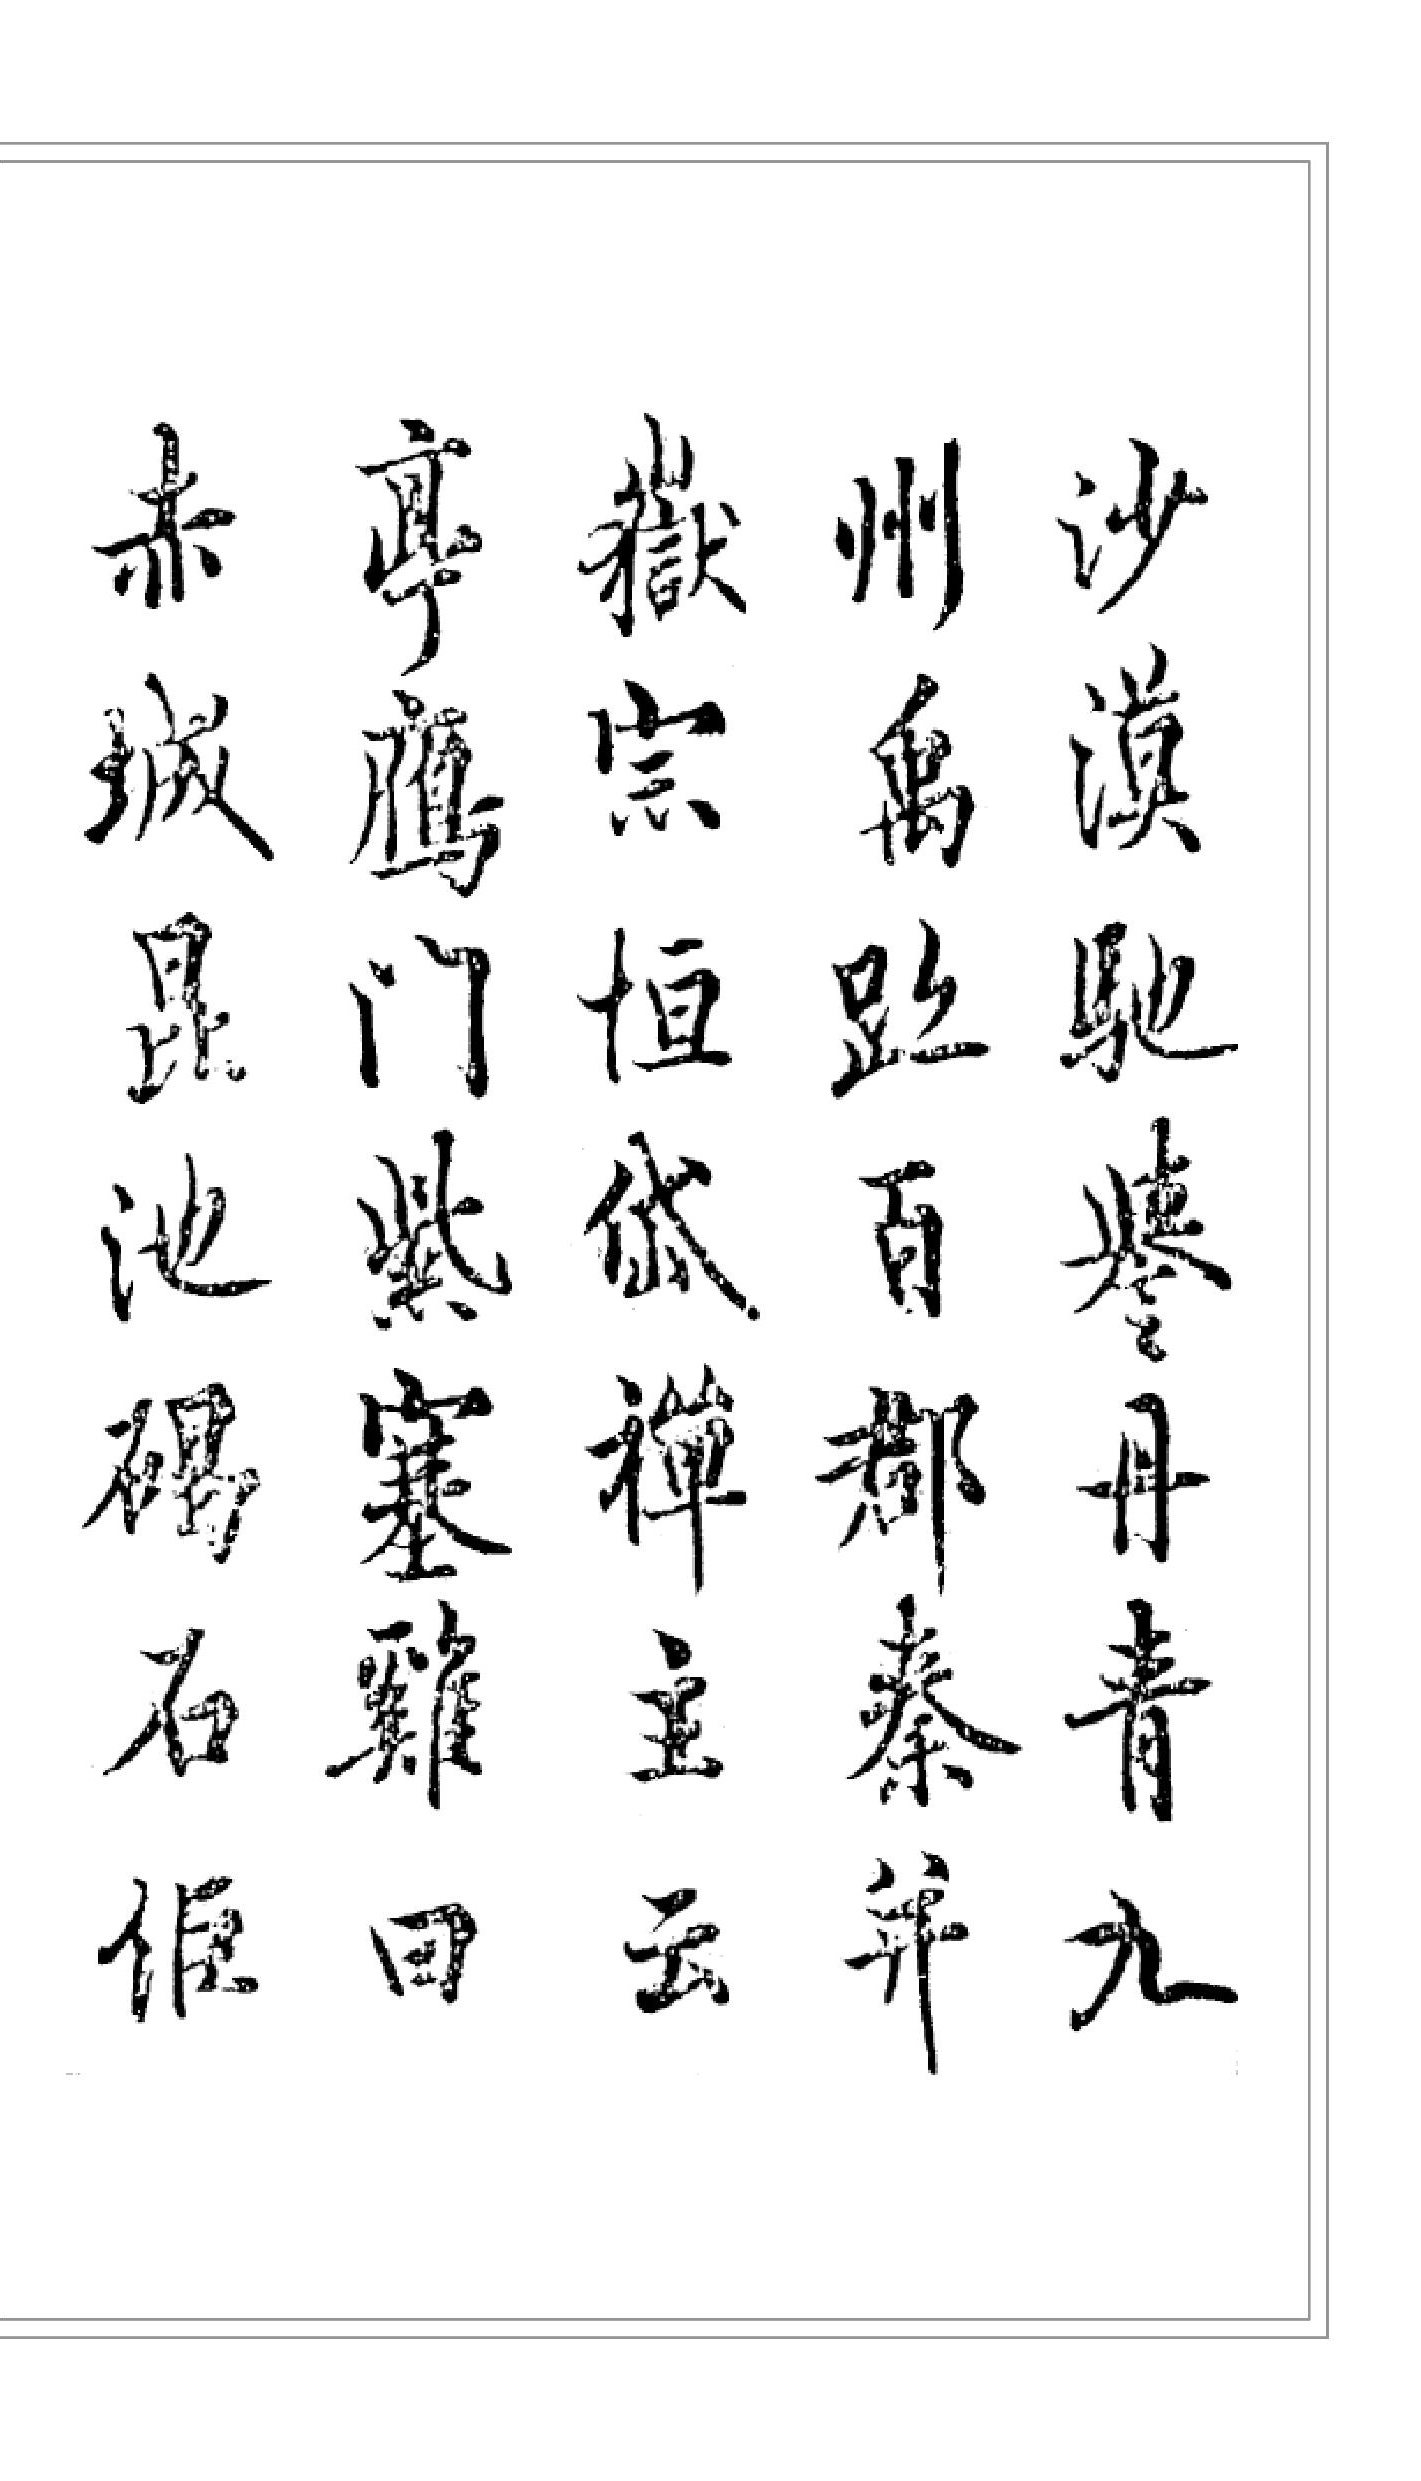 沙漠馳譽丹青九
州禹趾百郡秦并
嶽宗恒岱禪主云
亭鴈门紫塞雞田
赤城昆池碣石鉅